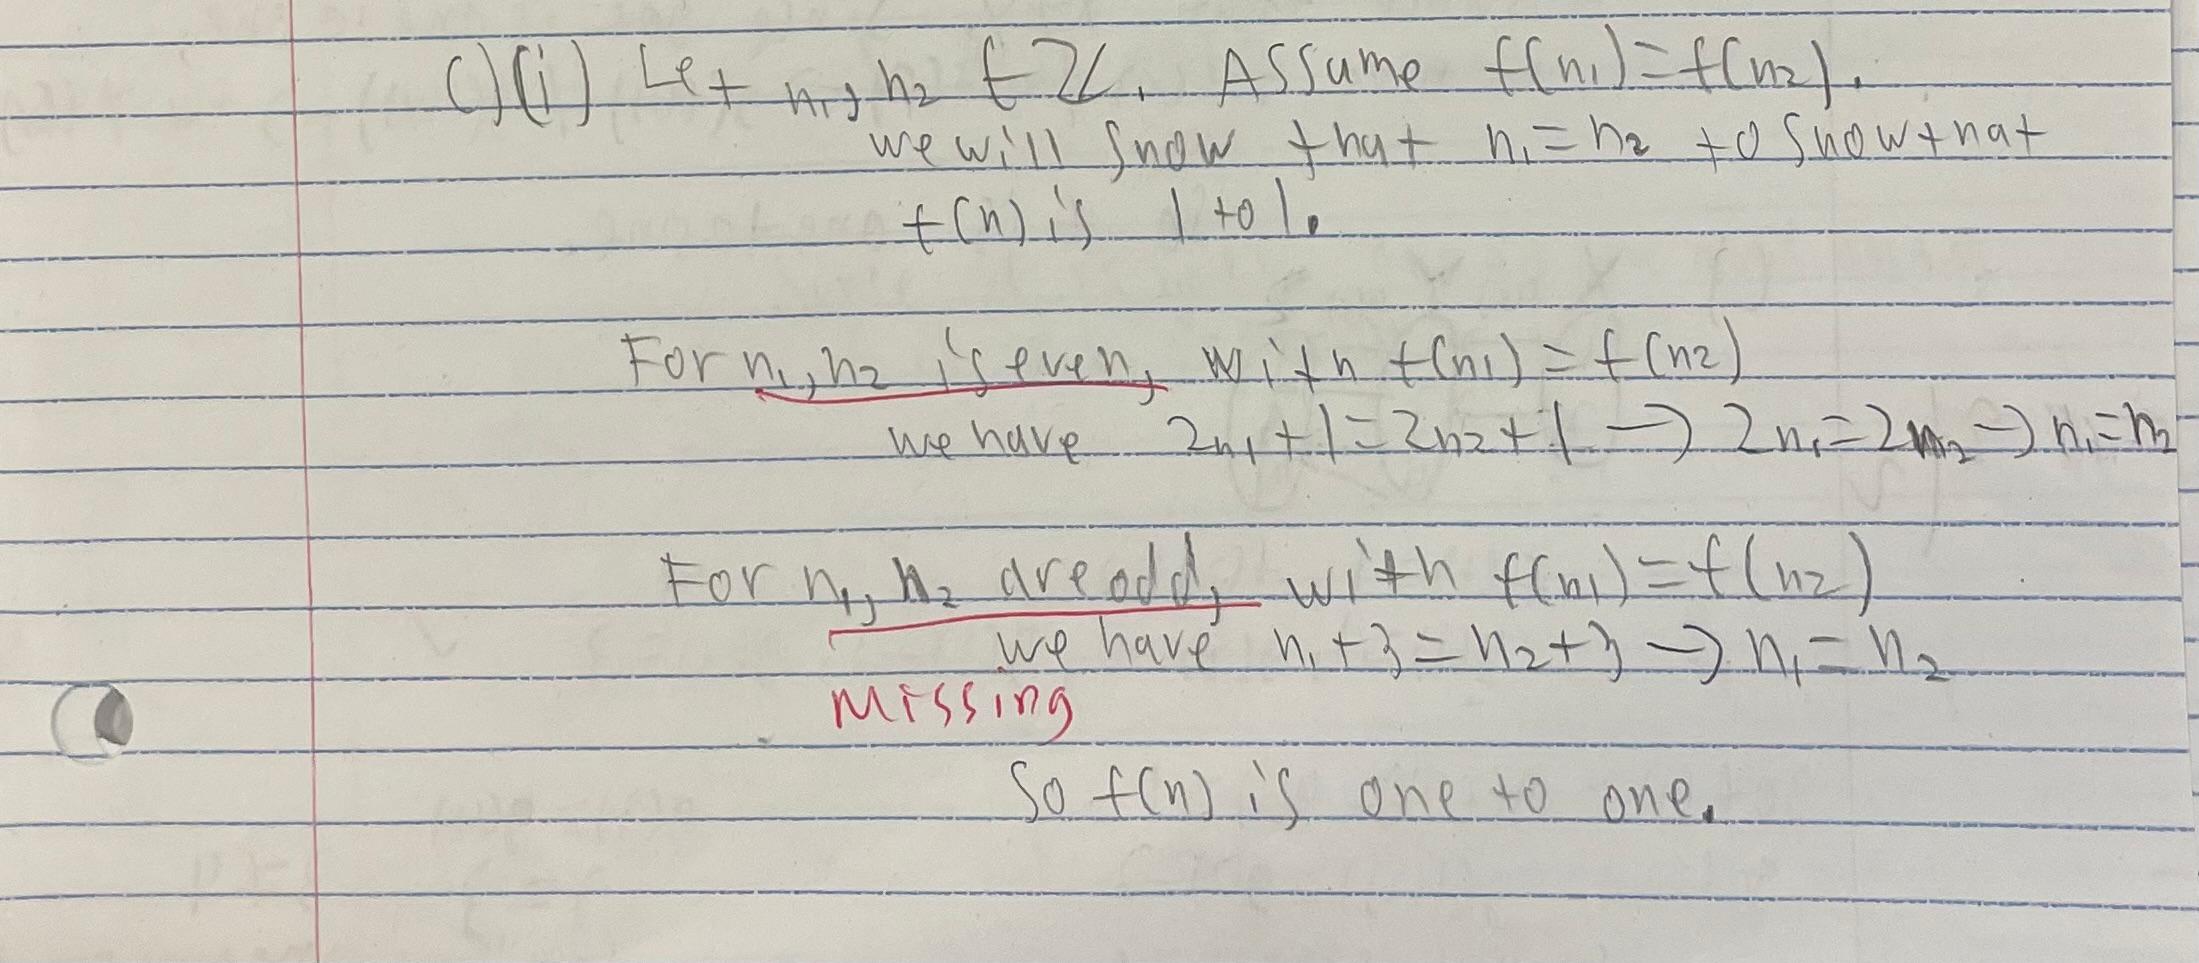 c)(i) Let n₁, n₂ ∈ ℤ. Assume f(n₁)=f(n₂).
we will show that n₁=n₂ to show that
f(n) is 1 to 1.
For n₁, n₂ is even, with f(n₁) = f(n₂)
we have 2n₁+1=2n₂+1 → 2n₁=2n₂ → n₁=n₂
For n₁, n₂ are odd, with f(n₁)=f(n₂)
we have n₁+3=n₂+3 → n₁=n₂
Missing
So f(n) is one to one.